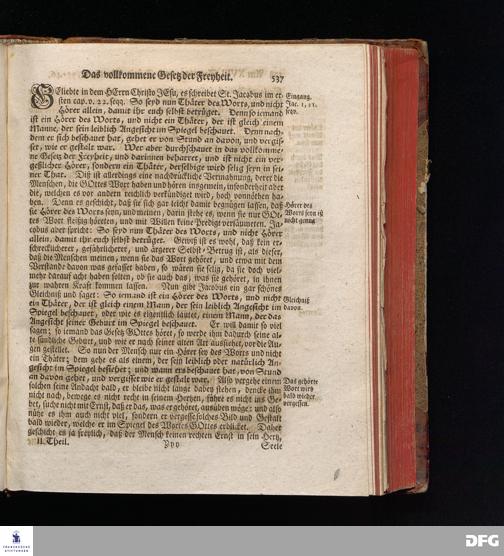 Das vollkommene Gesetz der Freyheit. 537
Geliebte in dem HErrn Christo JEsu, es schreibet St. Jacobus im er-
sten cap. v. 22. seqq. So seyd nun Thäter des Worts, und nicht
Hörer allein, damit ihr euch selbst betrüget. Denn so iemand
ist ein Hörer des Worts, und nicht ein Thäter, der ist gleich einem
Manne, der sein leiblich Angesicht im Spiegel beschauet. Denn nach-
dem er sich beschauet hat, gehet er von Stund an davon, und vergis-
set, wie er gestalt war. Wer aber durchschauet in das vollkomme-
ne Gesetz der Freyheit, und darinnen beharret, und ist nicht ein ver-
geßlicher Hörer, sondern ein Thäter, derselbige wird selig seyn in sei-
ner That. Diß ist allerdings eine nachdrückliche Vermahnung, derer die
Menschen, die GOttes Wort haben und hören insgemein, insonderheit aber
die, welchen es vor andern reichlich verkündiget wird, hoch vonnöthen ha-
ben. Denn es geschicht, daß sie sich gar leicht damit begnügen lassen, daß
sie Hörer des Worts seyn, und meinen, darin stehe es, wenn sie nur GOt-
tes Wort fleißig höreten, und mit Willen keine Predigt versäumeten. Ja-
cobus aber spricht: So seyd nun Thäter des Worts, und nicht Hörer
allein, damit ihr euch selbst betrüget. Gewiß ist es wohl, daß kein er-
schrecklicherer, gefährlicherer, und ärgerer Selbst-Betrug ist, als dieser,
daß die Menschen meinen, wenn sie das Wort gehöret, und etwa mit dem
Verstande davon was gefasset haben, so wären sie selig, da sie doch viel-
mehr darauf acht haben solten, ob sie auch das, was sie gehöret, in ihnen
zur wahren Kraft kommen lassen. Nun gibt Jacobus ein gar schönes
Gleichniß und saget: So iemand ist ein Hörer des Worts, und nicht
ein Thäter, der ist gleich einem Mann, der sein leiblich Angesicht im
Spiegel beschauet, oder wie es eigentlich lautet, einem Mann, der das
Angesicht seiner Geburt im Spiegel beschauet. Er will damit so viel
sagen; so iemand das Gesetz GOttes höret, so werde ihm dadurch seine al-
te sündliche Geburt, und wie er nach seiner alten Art aussiehet, vor die Au-
gen gestellet. So nun der Mensch nur ein Hörer sey des Worts und nicht
ein Thäter; dem gehe es als einem, der sein leiblich oder natürlich An-
gesicht im Spiegel besiehet; und wann ers beschauet hat, von Stund
an davon gehet, und vergisset wie er gestalt war. Also vergehe einem
solchen seine Andacht bald, er bleibe nicht lange dabey stehen, dencke ihm
nicht nach, bewege es nicht recht in seinem Hertzen, führe es nicht ins Ge-
bet, suche nicht mit Ernst, daß er das, was er gehöret, ausüben möge: und also
nütze es ihm auch nicht viel, sondern er vergesse solches Bild und Gestalt
bald wieder, welche er im Spiegel des Wortes GOttes erblicket. Daher
geschicht es ja freylich, daß der Mensch keinen rechten Ernst in sein Hertz,
II. Theil. Yyy Seele
Eingang.
Jac. 1, 21.
seqq.
Hörer des
Worts seyn ist
nicht genug
Gleichniß
davon.
Das gehörte
Wort wird
bald wieder
vergessen.
FRANCKESCHE
STIFTUNGEN
DFG